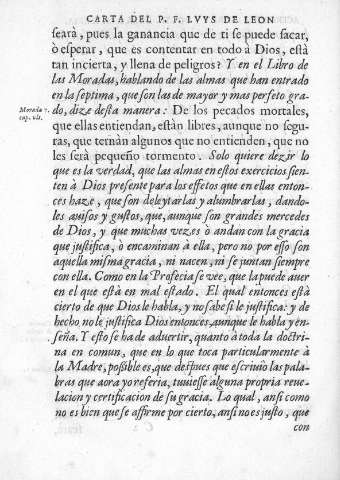 CARTA DEL P. F. LUYS DE LEON
ſearà, pues la ganancia que de ti ſe puede ſacar,
ò eſperar, que es contentar en todo à Dios, eſtà
tan incierta, y llena de peligros? Y en el Libro de
las Moradas, hablando de las almas que han entrado
en la ſeptima, que ſon las de mayor y mas perfeto gra-
Morada 7.
cap. vlt.
do, dize deſta manera: De los pecados mortales,
que ellas entiendan, eſtàn libres, aunque no ſegu-
ras, que ternàn algunos que no entienden, que no
les ſerà pequeño tormento. Solo quiere dezir lo
que es la verdad, que las almas en eſtos exercicios ſien-
ten à Dios preſente para los effetos que en ellas enton-
ces haze, que ſon deleytarlas y alumbrarlas, dando-
les auiſos y guſtos, que, aunque ſon grandes mercedes
de Dios, y que muchas vezes ò andan con la gracia
que juſtifica, ò encaminan à ella, pero no por eſſo ſon
aquella miſma gracia, ni nacen, ni ſe juntan ſiempre
con ella. Como en la Profecia ſe vee, que la puede auer
en el que eſtà en mal eſtado. El qual entonces eſtà
cierto de que Dios le habla, y no ſabe ſi le juſtifica: y de
hecho no le juſtifica Dios entonces, aunque le habla y en-
ſeña. Y eſto ſe ha de aduertir, quanto à toda la doctri-
na en comun, que en lo que toca particularmente à
la Madre, poßible es, que deſpues que eſcriuiò las pala-
bras que aora yo referia, tuuieſſe alguna propria reue-
lacion y certificacion de ſu gracia. Lo qual, anſi como
no es bien que ſe affirme por cierto, anſi no es juſto, que
con